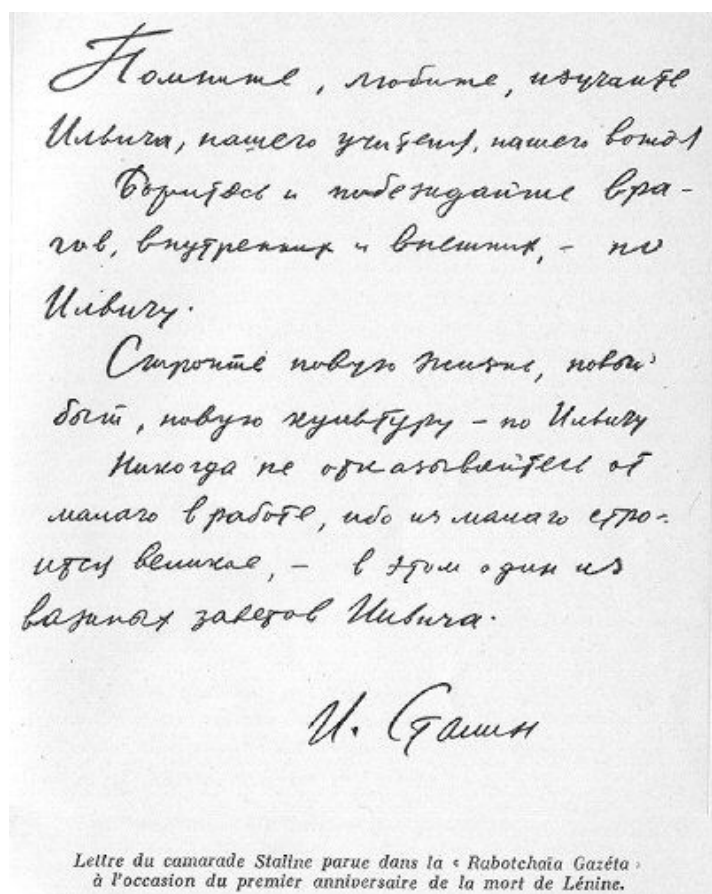 Помните, любите, изучайте
Ильича, нашего учителя, нашего вождя
Боритесь и побеждайте вра-
гов, внутренних и внешних, – по
Ильичу.
Стройте новую жизнь, новый
быт, новую культуру – по Ильичу
Никогда не отказывайтесь от
малаго в работе, ибо из малаго стро-
ится великое, – в этом один из
важных заветов Ильича.
И. Сталин
Lettre du camarade Staline parue dans la « Rabotchaïa Gazéta »
à l'occasion du premier anniversaire de la mort de Lénine.